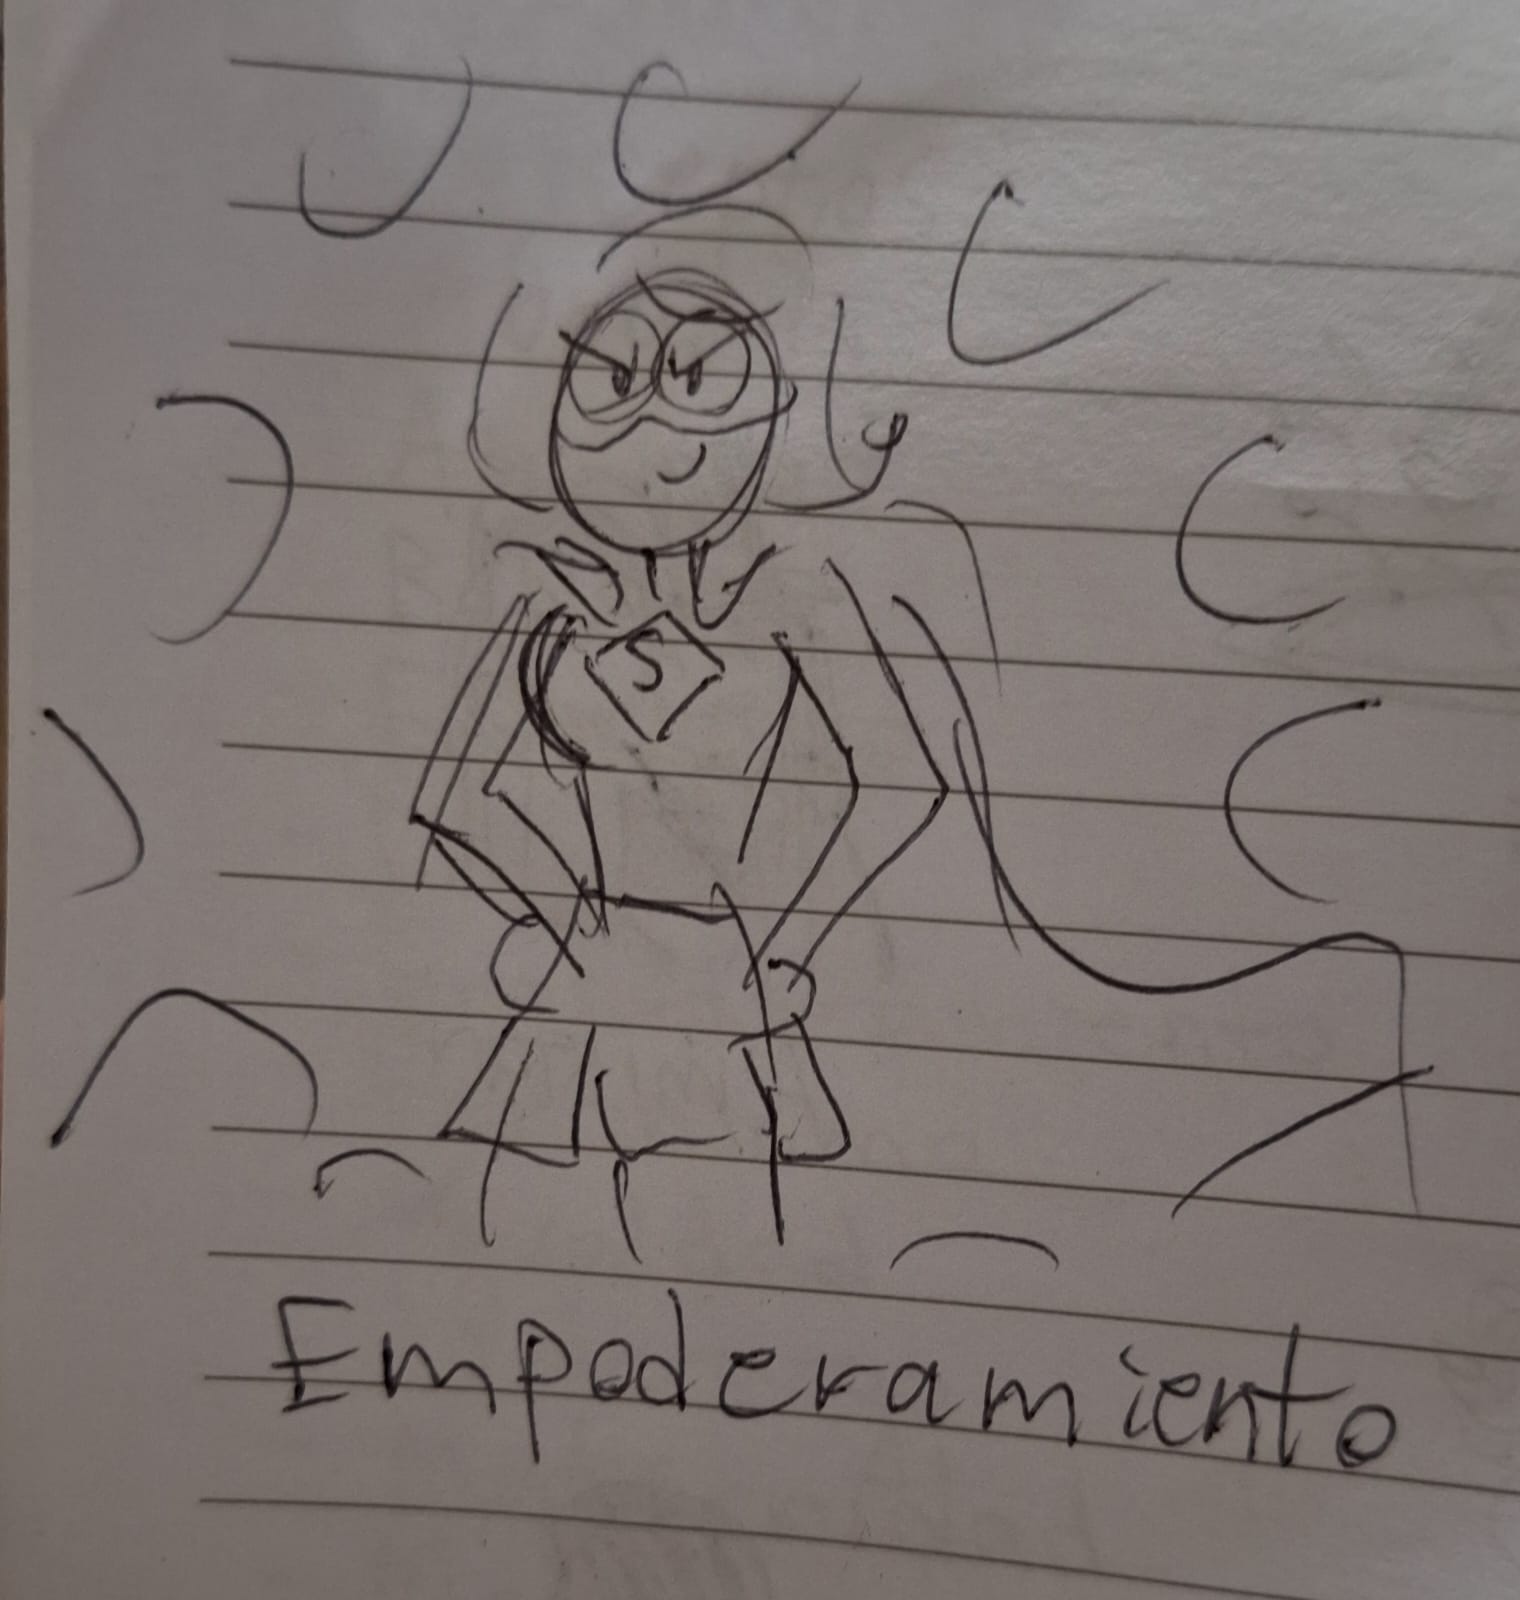 S
Empoderamiento